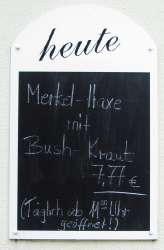 heute
Merkel-Haxe
mit
Bush-Kraut
7,77 €
(Täglich ab 11⁰⁰ Uhr
geöffnet!)